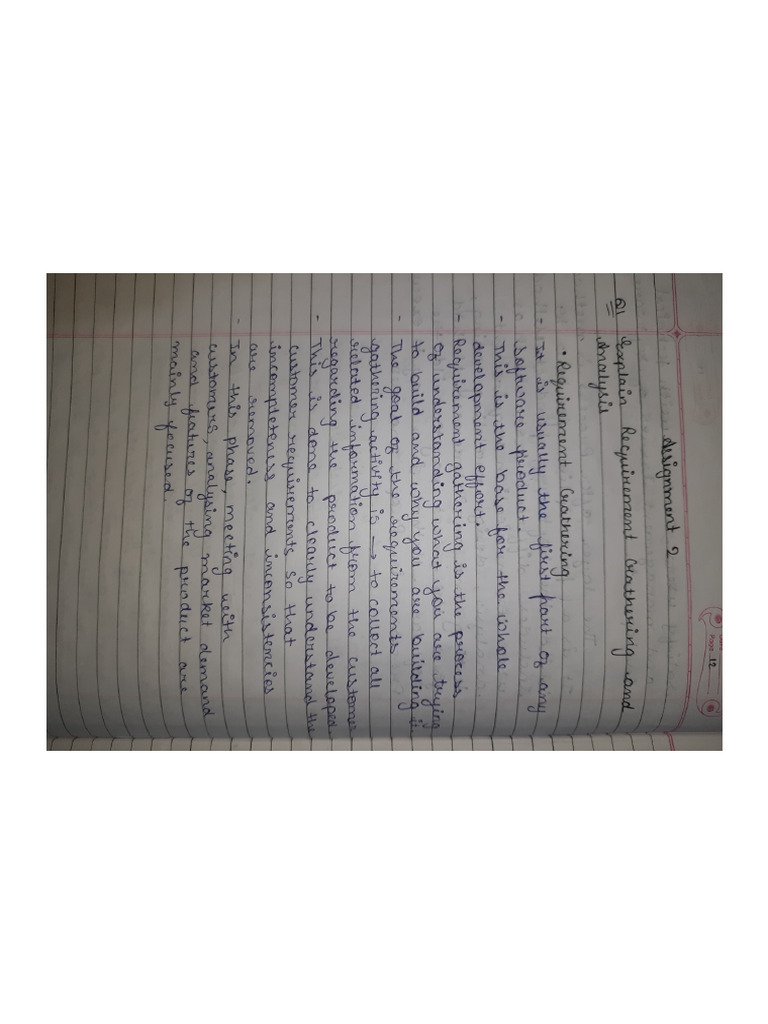 Page 12
Assignment 2
Q1 Explain Requirement Gathering and
Analysis
• Requirement Gathering
- It is usually the first part of any
software product.
- This is the base for the whole
development effort.
- Requirement gathering is the process
of understanding what you are trying
to build and why you are building it
- The goal of the requirements
gathering activity is → to collect all
related information from the customer
regarding the product to be developed
- This is done to clearly understand the
customer requirements so that
incompleteness and inconsistencies
are removed.
- In this phase, meeting with
customers, analysing market demand
and features of the product are
mainly focused.